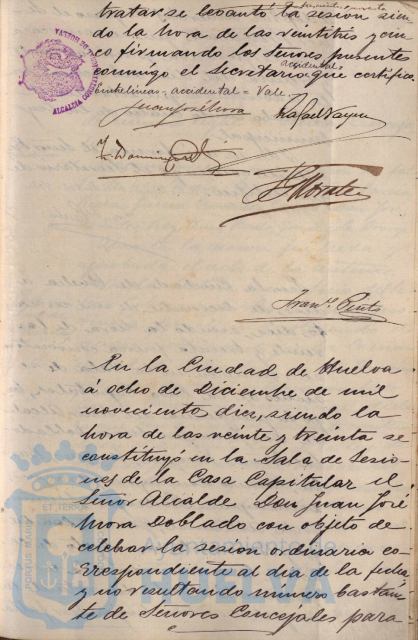 tratar se levantó la sesion sien
do la hora de las veintitres y cin
co firmando los señores presentes
accidental
conmigo el Secretario que certifico.
entrelineas, accidental = Vale.
Juan José Mora
Rafael Vazquez
F. Dominguez
Morales
Franco. Pinto
En la Ciudad de Huelva
á ocho de Diciembre de mil
novecientos diez, siendo la
hora de las veinte y treinta se
constituyó en la Sala de Sesio
nes de la Casa Capitular el
Señor Alcalde Don Juan José
Mora Doblado con objeto de
celebrar la sesion ordinaria co-
rrespondiente al dia de la fecha
y no resultando numero bastan
te de Señores Concejales para
Ayuntamiento de
HUELVA
PORTUS MARIS ET TERRAE